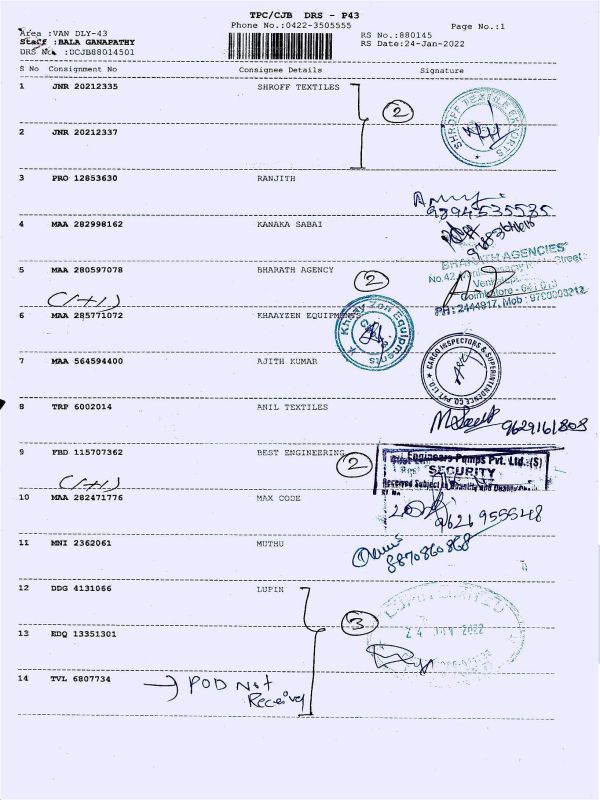 TPC/CJB DRS - P43
Area :VAN DLY-43 Phone No.:0422-3505555 Page No.:1
Staff :BALA GANAPATHY RS No.:880145
DRS No. :DCJB88014501 RS Date:24-Jan-2022
S No Consignment No Consignee Details Signature
1 JNR 20212335 SHROFF TEXTILES
2
SHROFF TEXTILE EXPORTS
2 JNR 20212337
3 PRO 12853630 RANJITH
9894535535
4 MAA 282998162 KANAKA SABAI
BHARATH AGENCIES
5 MAA 280597078 BHARATH AGENCY
No.42, Street
Coimbatore - 641 015
PH: 2444917, Mob : 9790003212
(1+1)
2
6 MAA 285771072 KHAAYZEN EQUIPMENTS
Khaay Zen Equipments
7 MAA 564594400 AJITH KUMAR
CARGO INSPECTORS & SUPERINTENDENCE CO. PVT. LTD.
8 TRP 6002014 ANIL TEXTILES
9629161808
9 FBD 115707362 BEST ENGINEERING
2
Engineers Pumps Pvt. Ltd.(S)
SECURITY
Received Subject to Quantity and Quality
(1+1)
10 MAA 282471776 MAX CODE
9626955548
11 MNI 2362061 MUTHU
8870860868
12 DDG 4131066 LUPIN
3
LUPIN LIMITED
24 JAN 2022
13 EDQ 13351301
14 TVL 6807734
POD Not
Received